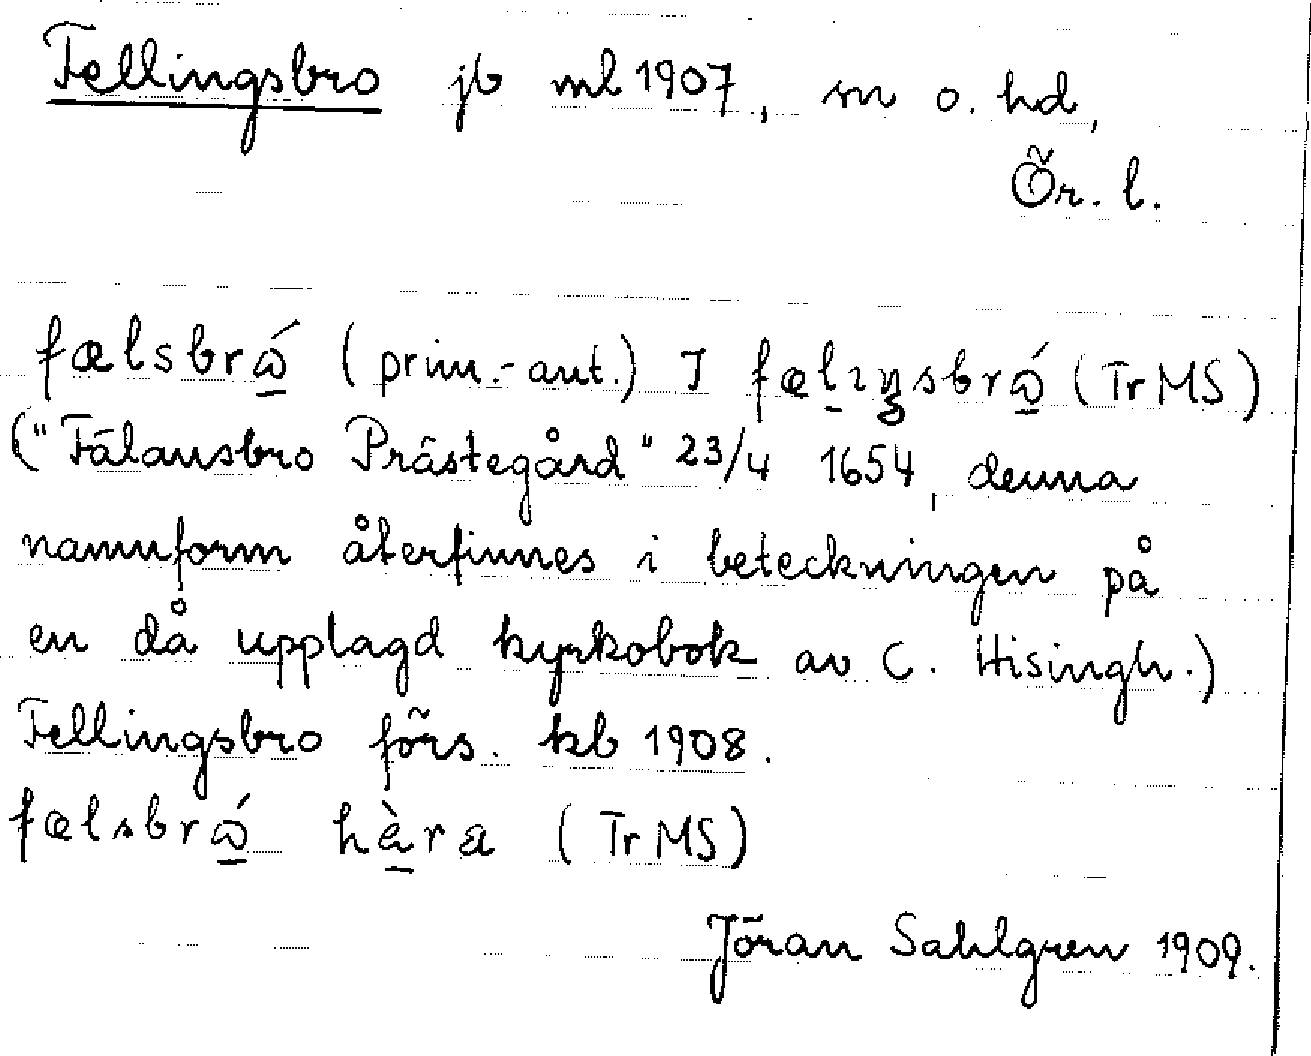 Fellingsbro jb ml 1907, sn o. hd,
Ör. l.
fælsbrɷ́ (prim.-ant.) I fælıŋsbrɷ́ (Tr MS)
("Fälansbro Prästegård" 23/4 1654, denna
namnform återfinnes i beteckningen på
en då upplagd kyrkobok av C. Hisingh.)
Fellingsbro förs. kb 1908.
fælsbrɷ́ hàra (Tr MS)
Jöran Sahlgren 1909.